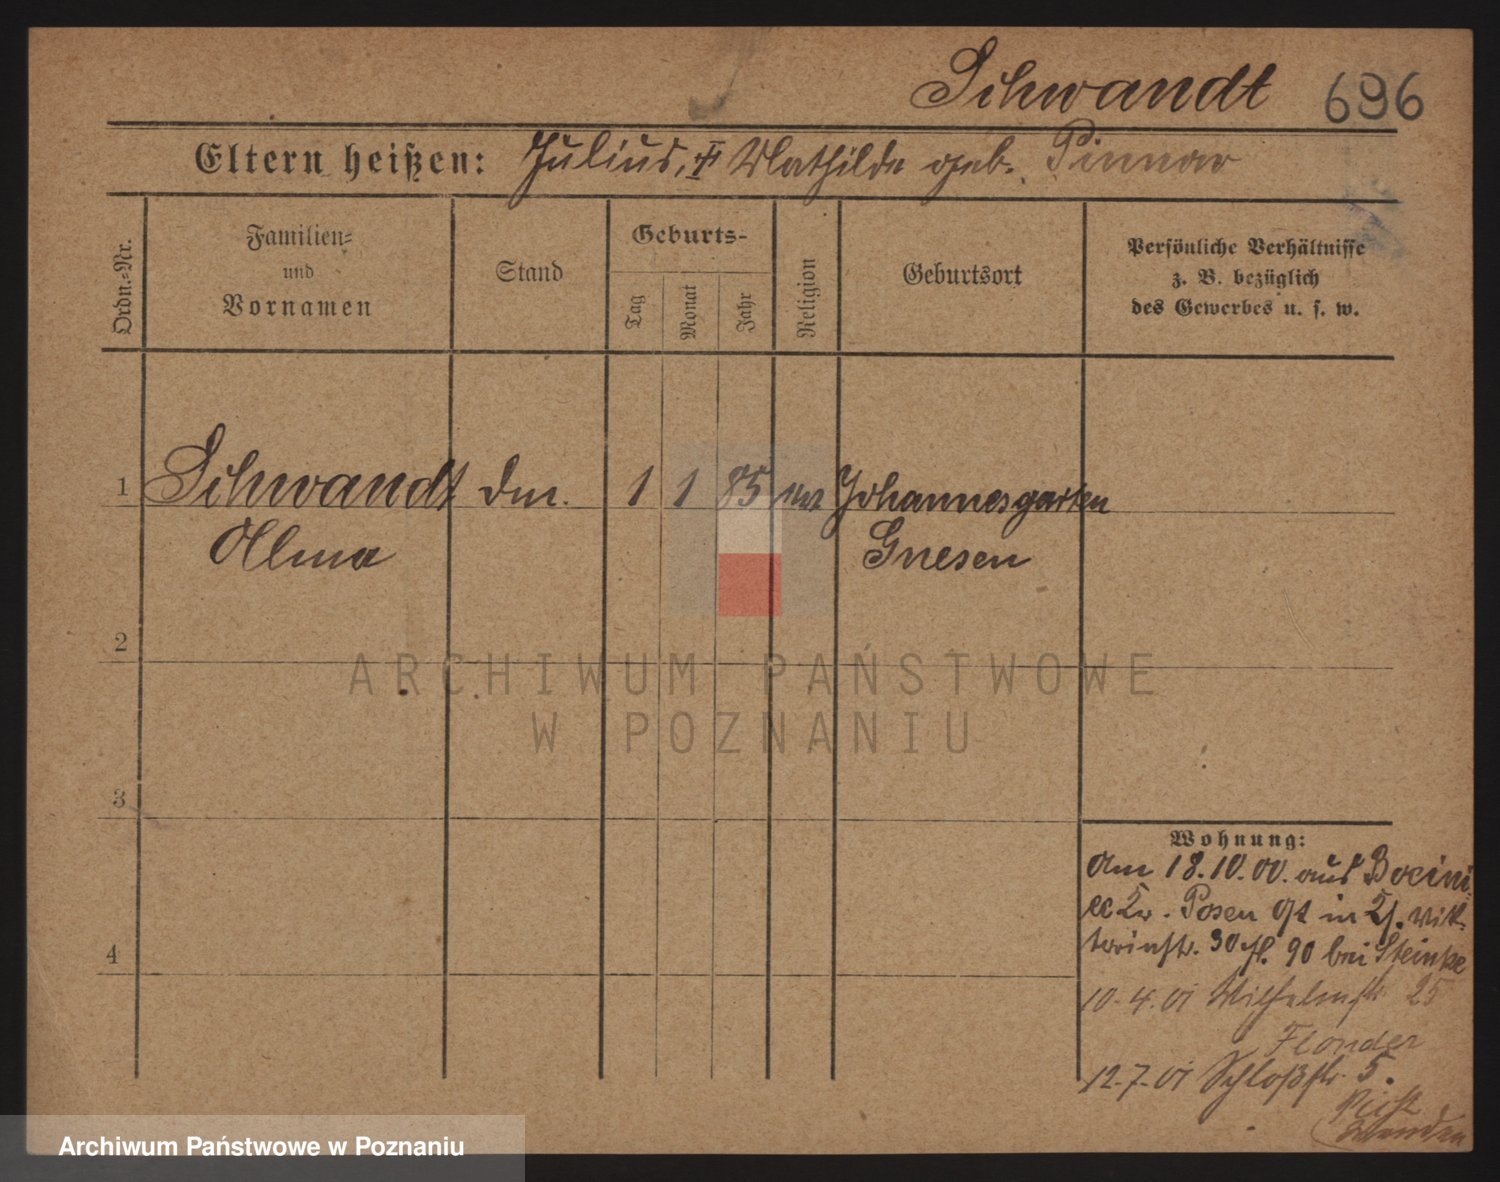 Schwandt 696
Eltern heißen: Julius, Mathilde geb.
Ordn.-Nr.
Familien-
und
Vornamen
Stand
Geburts-
Tag
Monat
Jahr
Religion
Geburtsort
Persönliche Verhältnisse
z. B. bezüglich
des Gewerbes u. s. w.
1 Schwandt 1 1 85 Johannesgarten
Alma Gnesen
2
ARCHIWUM PAŃSTWOWE
W POZNANIU
3
4
Wohnung:
Am 18.10.00. aus
Posen in
30 90 bei Steinke
10.4.01 Wilhelmstr. 25
Flonder
12.7.01 Schloßstr. 5.
Archiwum Państwowe w Poznaniu